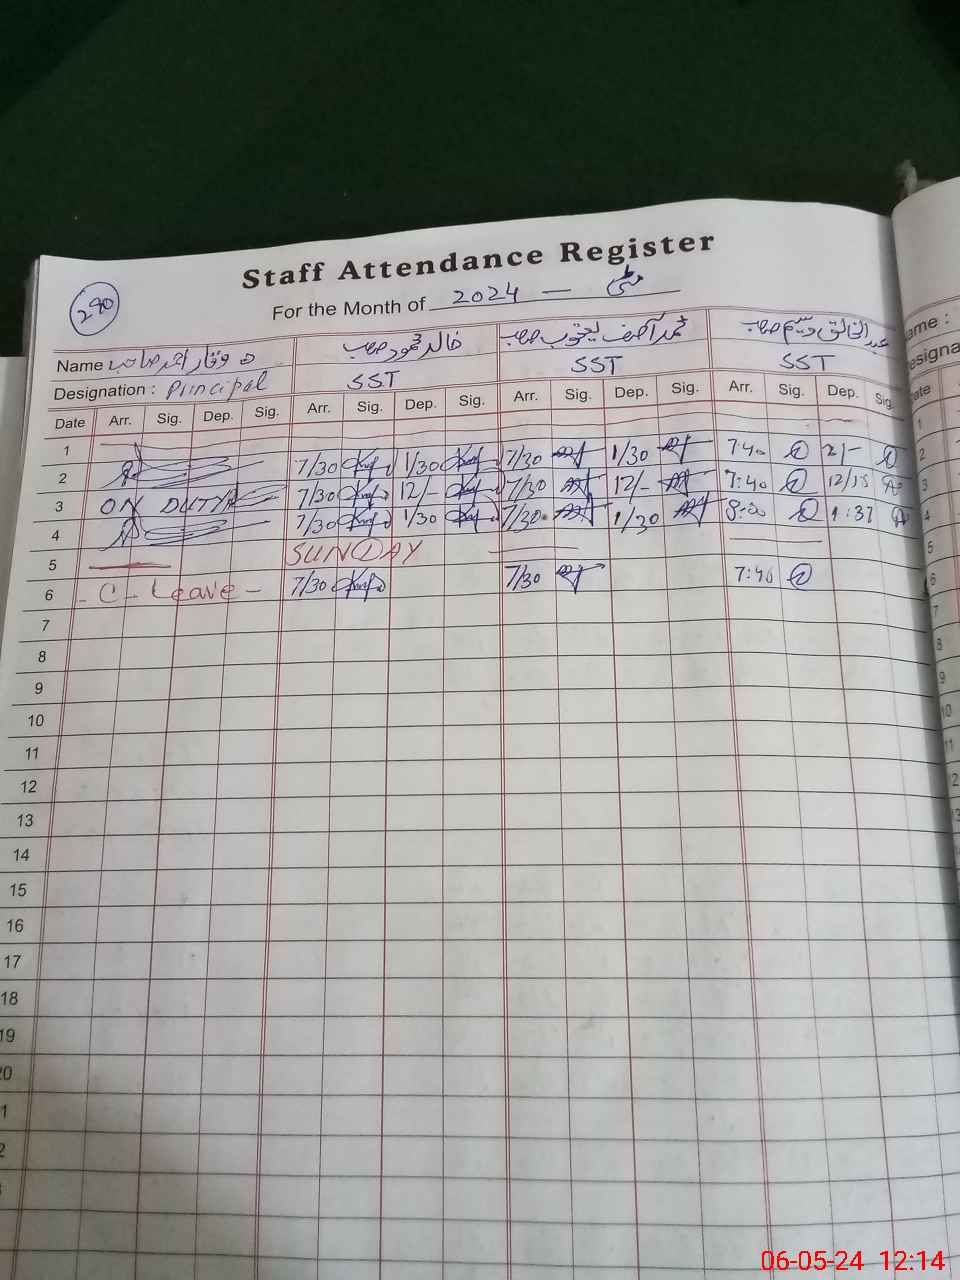 Staff Attendance Register
290
For the Month of 2024 — مئی
Name وقار احمد صاحب خالد محمود صاحب محمد آصف یعقوب صاحب عبدالخالق وسیم صاحب ame :
Designation : Principal SST SST SST esigna
Date Arr. Sig. Dep. Sig. Arr. Sig. Dep. Sig. Arr. Sig. Dep. Sig. Arr. Sig. Dep. Sig. ate
1 1
2 7/30 1/30 7/30 1/30 7:40 2/- 2
3 ON DUTY 7/30 12/- 7/30 12/- 7:40 12/15 3
4 7/30 1/30 7/30 1/30 8:00 1:37 4
5 SUNDAY 5
6 - C - Leave - 7/30 7/30 7:40 6
7 7
8 8
9 9
10 10
11 11
12
13
14
15
16
17
18
19
06-05-24 12:14